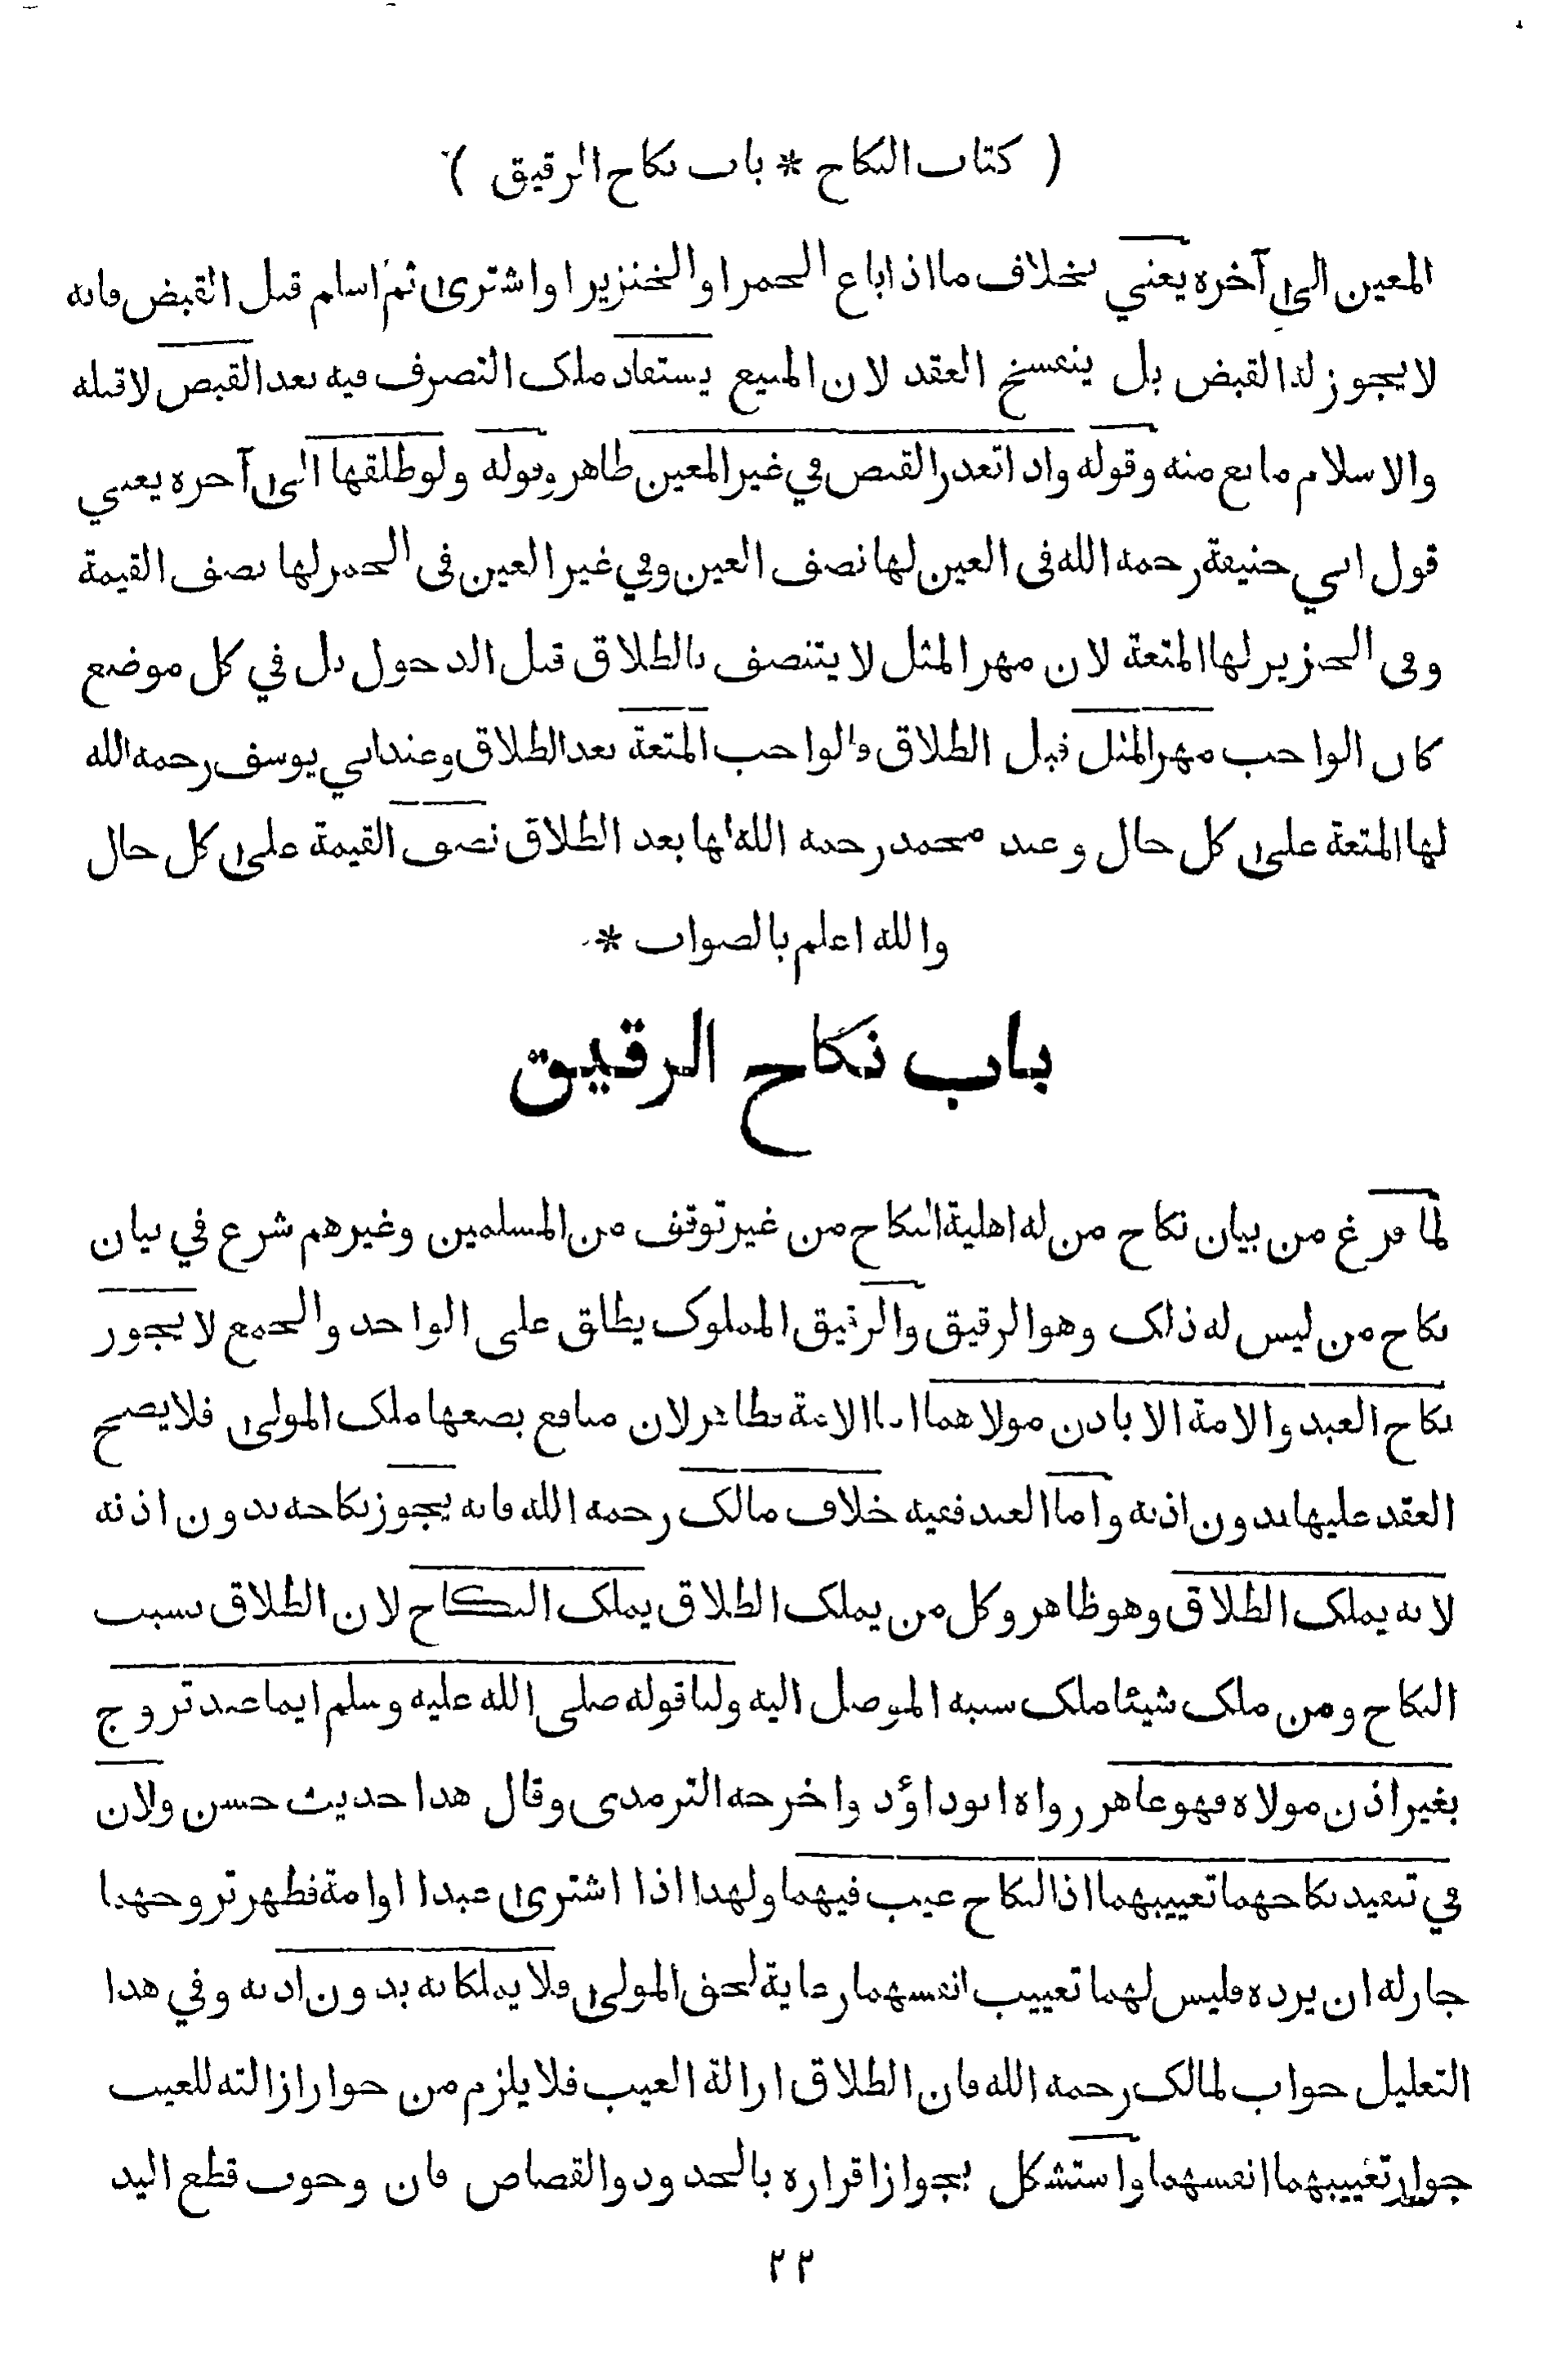 ( كتاب النكاح * باب نكاح الرقيق )
المعين الى آخره يعني بخلاف ما اذا باع الخمر او الخنزير او اشترى ثم اسلم قبل القبض فانه
لا يجوز له القبض بل ينفسخ العقد لان المبيع يستفاد ملك التصرف فيه بعد القبض لا قبله
والاسلام مانع منه وقوله واذا تعذر القبض في غير المعين ظاهر وقوله ولو طلقها الى آخره يعني
قول ابي حنيفة رحمه الله في العين لها نصف العين وفي غير العين في الخمر لها نصف القيمة
وفي الخنزير لها المتعة لان مهر المثل لا يتنصف بالطلاق قبل الدخول بل في كل موضع
كان الواجب مهر المثل قبل الطلاق فالواجب المتعة بعد الطلاق وعند ابي يوسف رحمه الله
لها المتعة على كل حال وعند محمد رحمه الله لها بعد الطلاق نصف القيمة على كل حال
والله اعلم بالصواب *
باب نكاح الرقيق
لما فرغ من بيان نكاح من له اهلية النكاح من غير توقف من المسلمين وغيرهم شرع في بيان
نكاح من ليس له ذلك وهو الرقيق والرقيق المملوك يطلق على الواحد والجمع لا يجوز
نكاح العبد والامة الا باذن مولاهما اما الامة فظاهر لان منافع بضعها ملك المولى فلا يصح
العقد عليها بدون اذنه واما العبد ففيه خلاف مالك رحمه الله فانه يجوز نكاحه بدون اذنه
لانه يملك الطلاق وهو ظاهر وكل من يملك الطلاق يملك النكاح لان الطلاق بسبب
النكاح ومن ملك شيئا ملك سببه الموصل اليه ولنا قوله صلى الله عليه وسلم ايما عبد تزوج
بغير اذن مولاه فهو عاهر رواه ابوداؤد واخرجه الترمذي وقال هذا حديث حسن ولان
في تنفيذ نكاحهما تعييبهما اذ النكاح عيب فيهما ولهذا اذا اشترى عبدا او امة فظهر تزوجهما
جاز له ان يرده فليس لهما تعييب انفسهما رعاية لحق المولى فلا يملكانه بدون اذنه وفي هذا
التعليل جواب لمالك رحمه الله فان الطلاق ازالة العيب فلا يلزم من جواز ازالته للعيب
جواز تعييبهما انفسهما واستشكل بجواز اقراره بالحدود والقصاص فان وجوب قطع اليد
٢٢